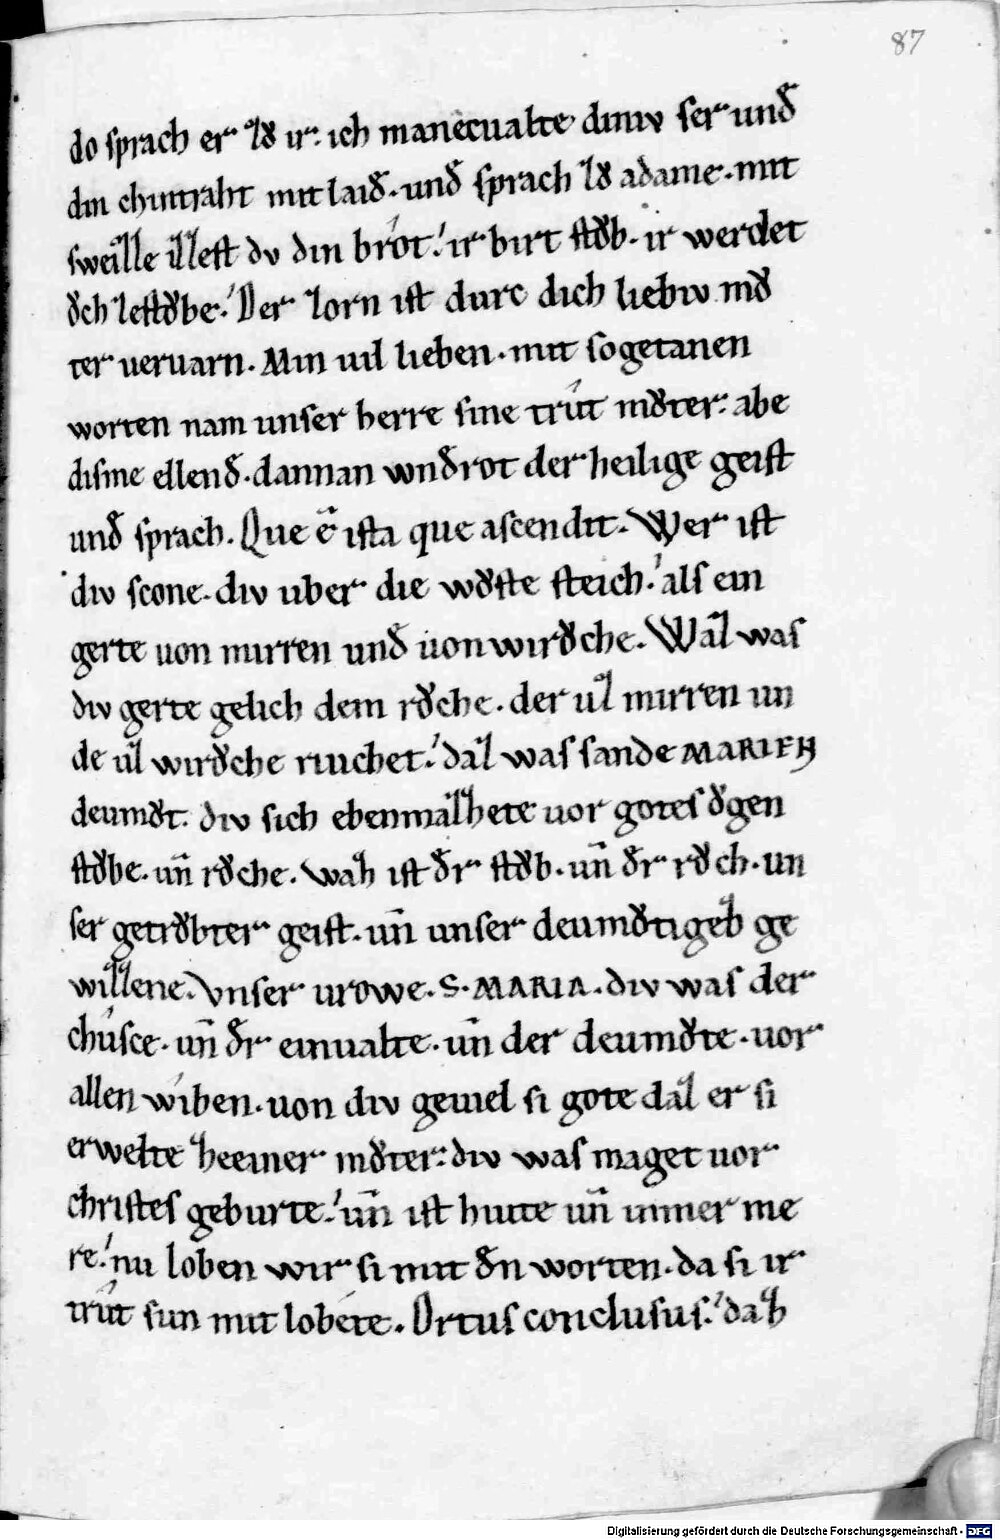 87
do sprach er zͦ ir. ich manecualte diniv ser unđ
din chintraht mit laiđ. unđ sprach zͦ adame. mit
sweizze izzest dv din brót. ir birt stͦb. ir werdet
ͦch ze stͦbe. Der zorn ist durc dich liebiv mͦ
ter ueruarn. Min uil lieben. mit sogetanen
worten nam unser herre sine trût mͦter. abe
disme ellenđ. dannan wnđrot der heilige geist
unđ sprach. Que ē ista que ascendit. Wer ist
div scone. div uber die wͦste steich. als ein
gerte uon mirren unđ uon wirͦche. Waz was
div gerte gelich dem rͦche. der uz mirren un
de uz wirͦche riuchet. daz was sande MARIEN
deumͦt. div sich ebenmazzhete uor gotes ͦgen
stͦbe. uñ rͦche. waz ist đr stͦb. uñ đr rͦch. un
ser getrͦbter geist. uñ unser deumͦtigez ge
wizzene. Vnser urowe. S. MARIA. div was der
chúsce. uñ đr einualte. uñ der deumͦte. uor
allen wíben. uon div geuiel si gote daz er si
erwelte zeeiner mͦter. div was maget uor
christes geburte. uñ ist hiute uñ immer me
re. nu loben wir si mit đn worten. da si ir
trût sun mit lobéte. Ortus conclusus. daz
Digitalisierung gefördert durch die Deutsche Forschungsgemeinschaft - DFG